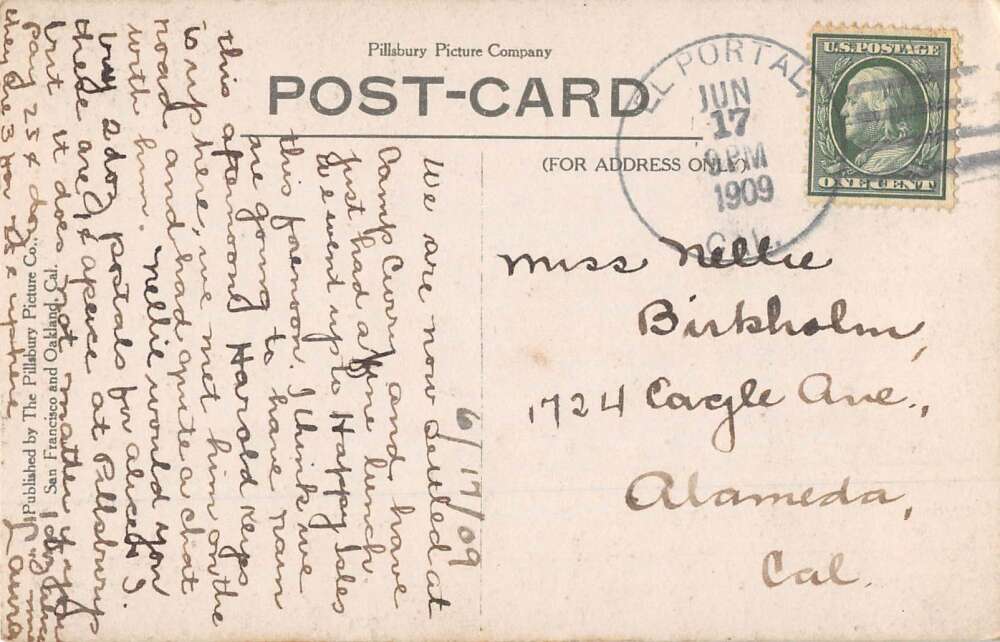 Pillsbury Picture Company
POST-CARD
(FOR ADDRESS ONLY)
EL PORTAL
JUN
17
PM
1909
CAL.
U.S. POSTAGE
ONE CENT
Miss Nellie
Birkholm,
1724 Eagle Ave.,
Alameda,
Cal.
6/17/09
We are now settled at
Camp Curry and have
just had a fine lunch.
We went up to Happy Isles
this forenoon. I think we
are going to have rain
this afternoon. Harold Keys
is up here, we met him on the
road and had quite a chat
with him. Nellie would you
buy 2 doz postals for Alice?
these are 1¢ apiece at Pillsbury
but it does not matter if you
pay 25¢ a doz.
they are 3 for up here
Laura
Published by The Pillsbury Picture Co.,
San Francisco and Oakland, Cal.